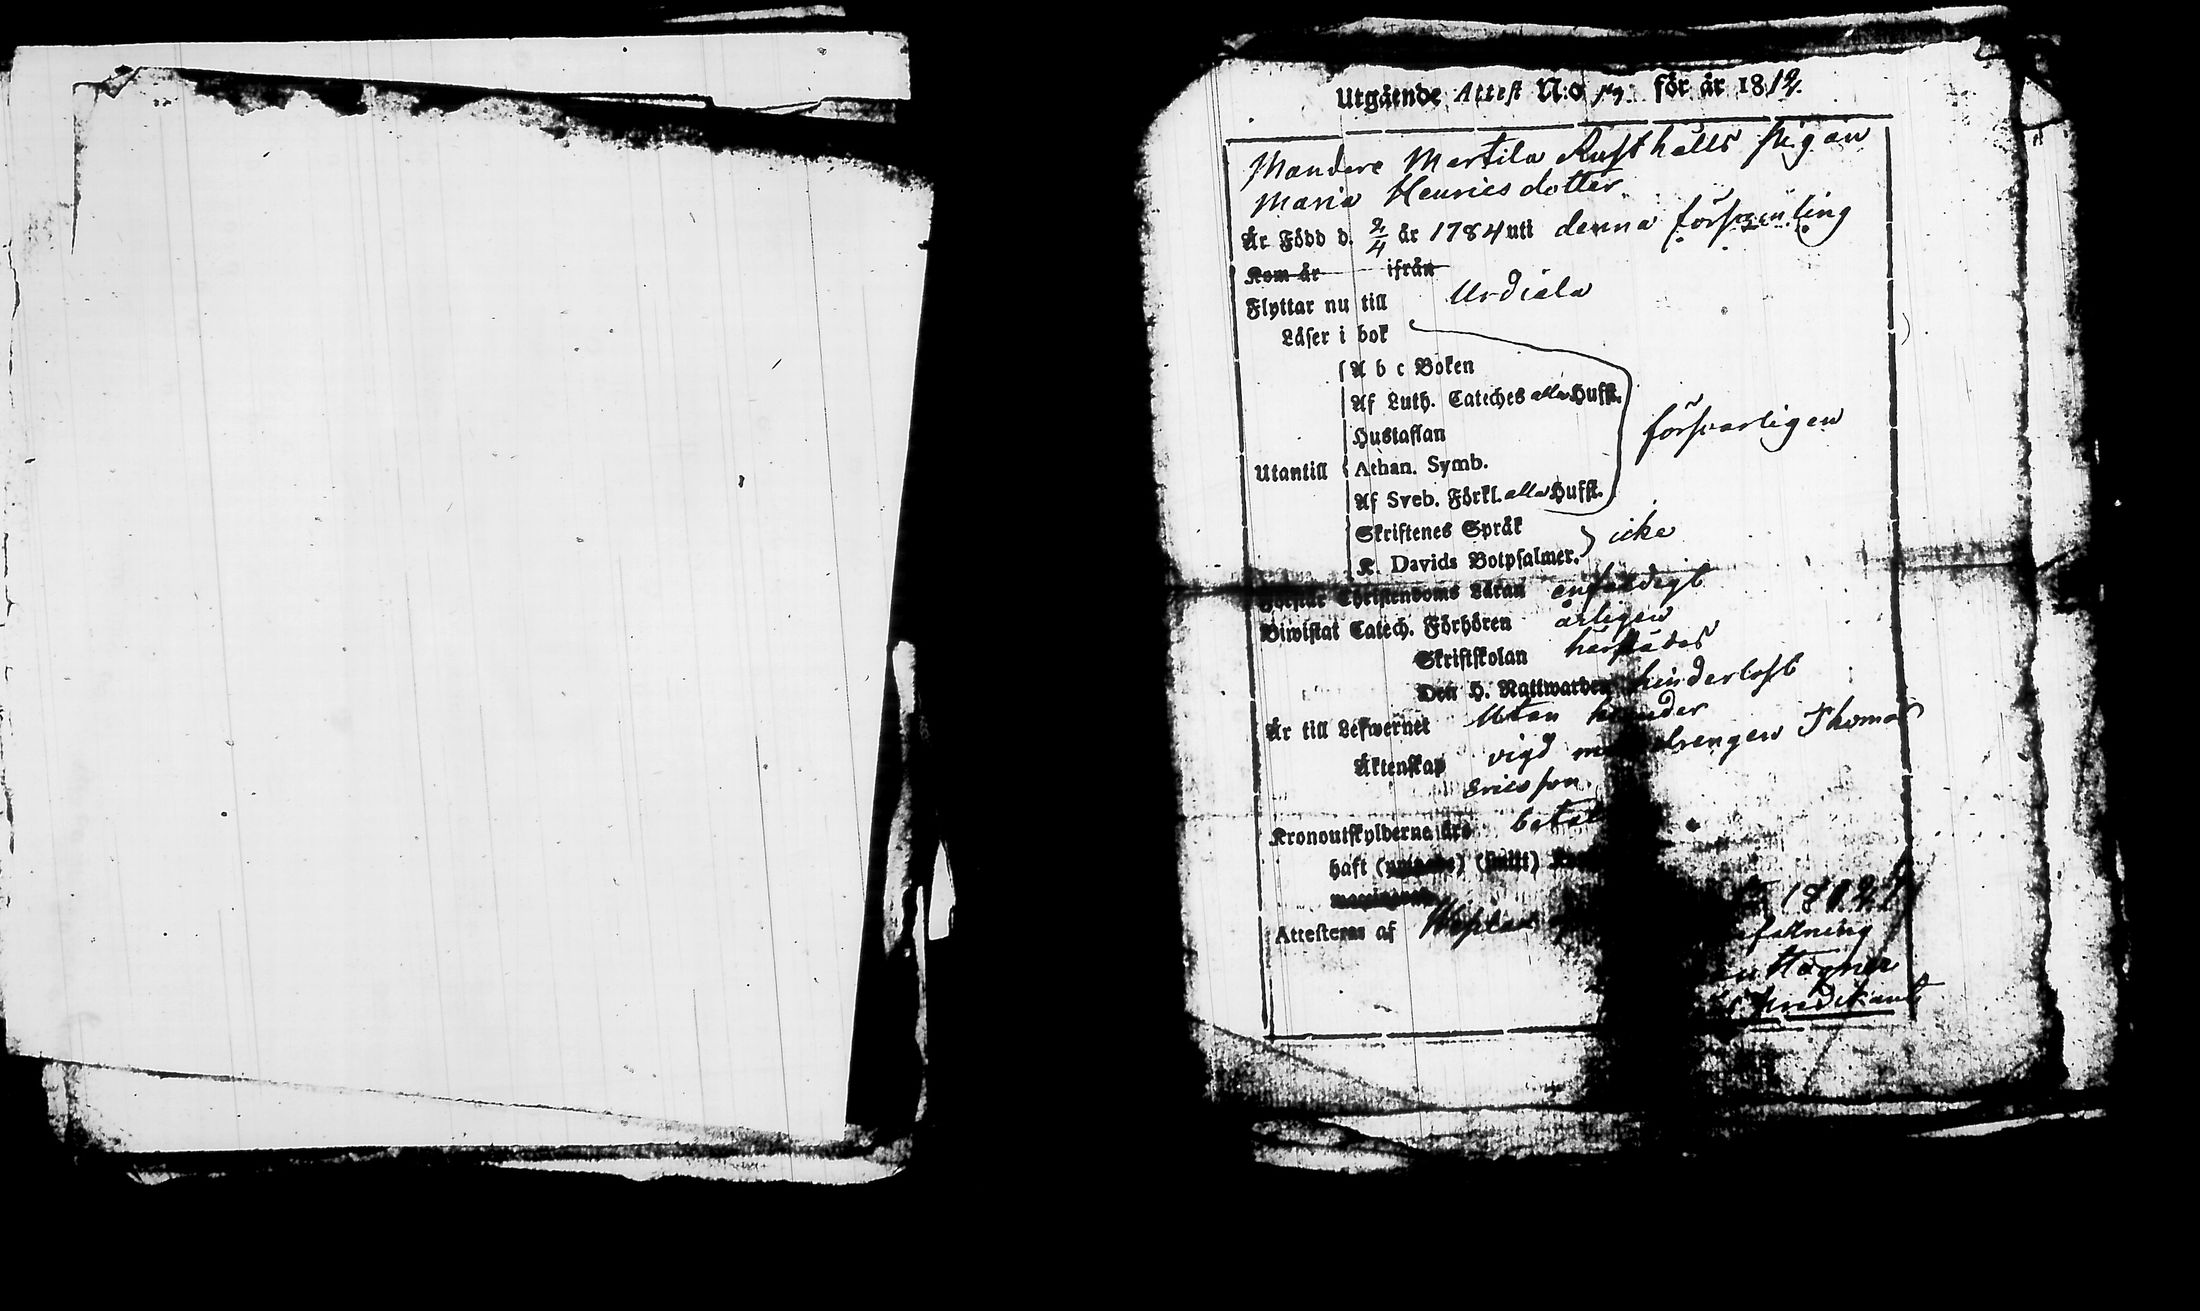 Utgående Attest N:o för år 1812.
Mandere Martila Rusthålls pigan
Maria Henricsdotter
Är Född d. 2/4 år 1784 uti denna församling
Kom år ifrån
Flyttar nu till Urdiala
Läser i bok
A b c Boken
Af Luth. Cateches alla Hufst.
Hustaflan
försvarligen
Utantill Athan. Symb.
Af Sveb. Förkl. alla Hufst.
Skriftenes Språk
icke
K. Davids Botpsalmer.
Förstår Christendoms Läran enfaldigt
Biwistat Catech. Förhören årligen
Skriftskolan härstädes
Den H. Nattwarden hinderlöst
Är till Lefwernet Utan hinder
Äktenskap vigd med drengen Thomas
Ericsson.
Kronoutskylderna äro
haft
Attesteras af 1812